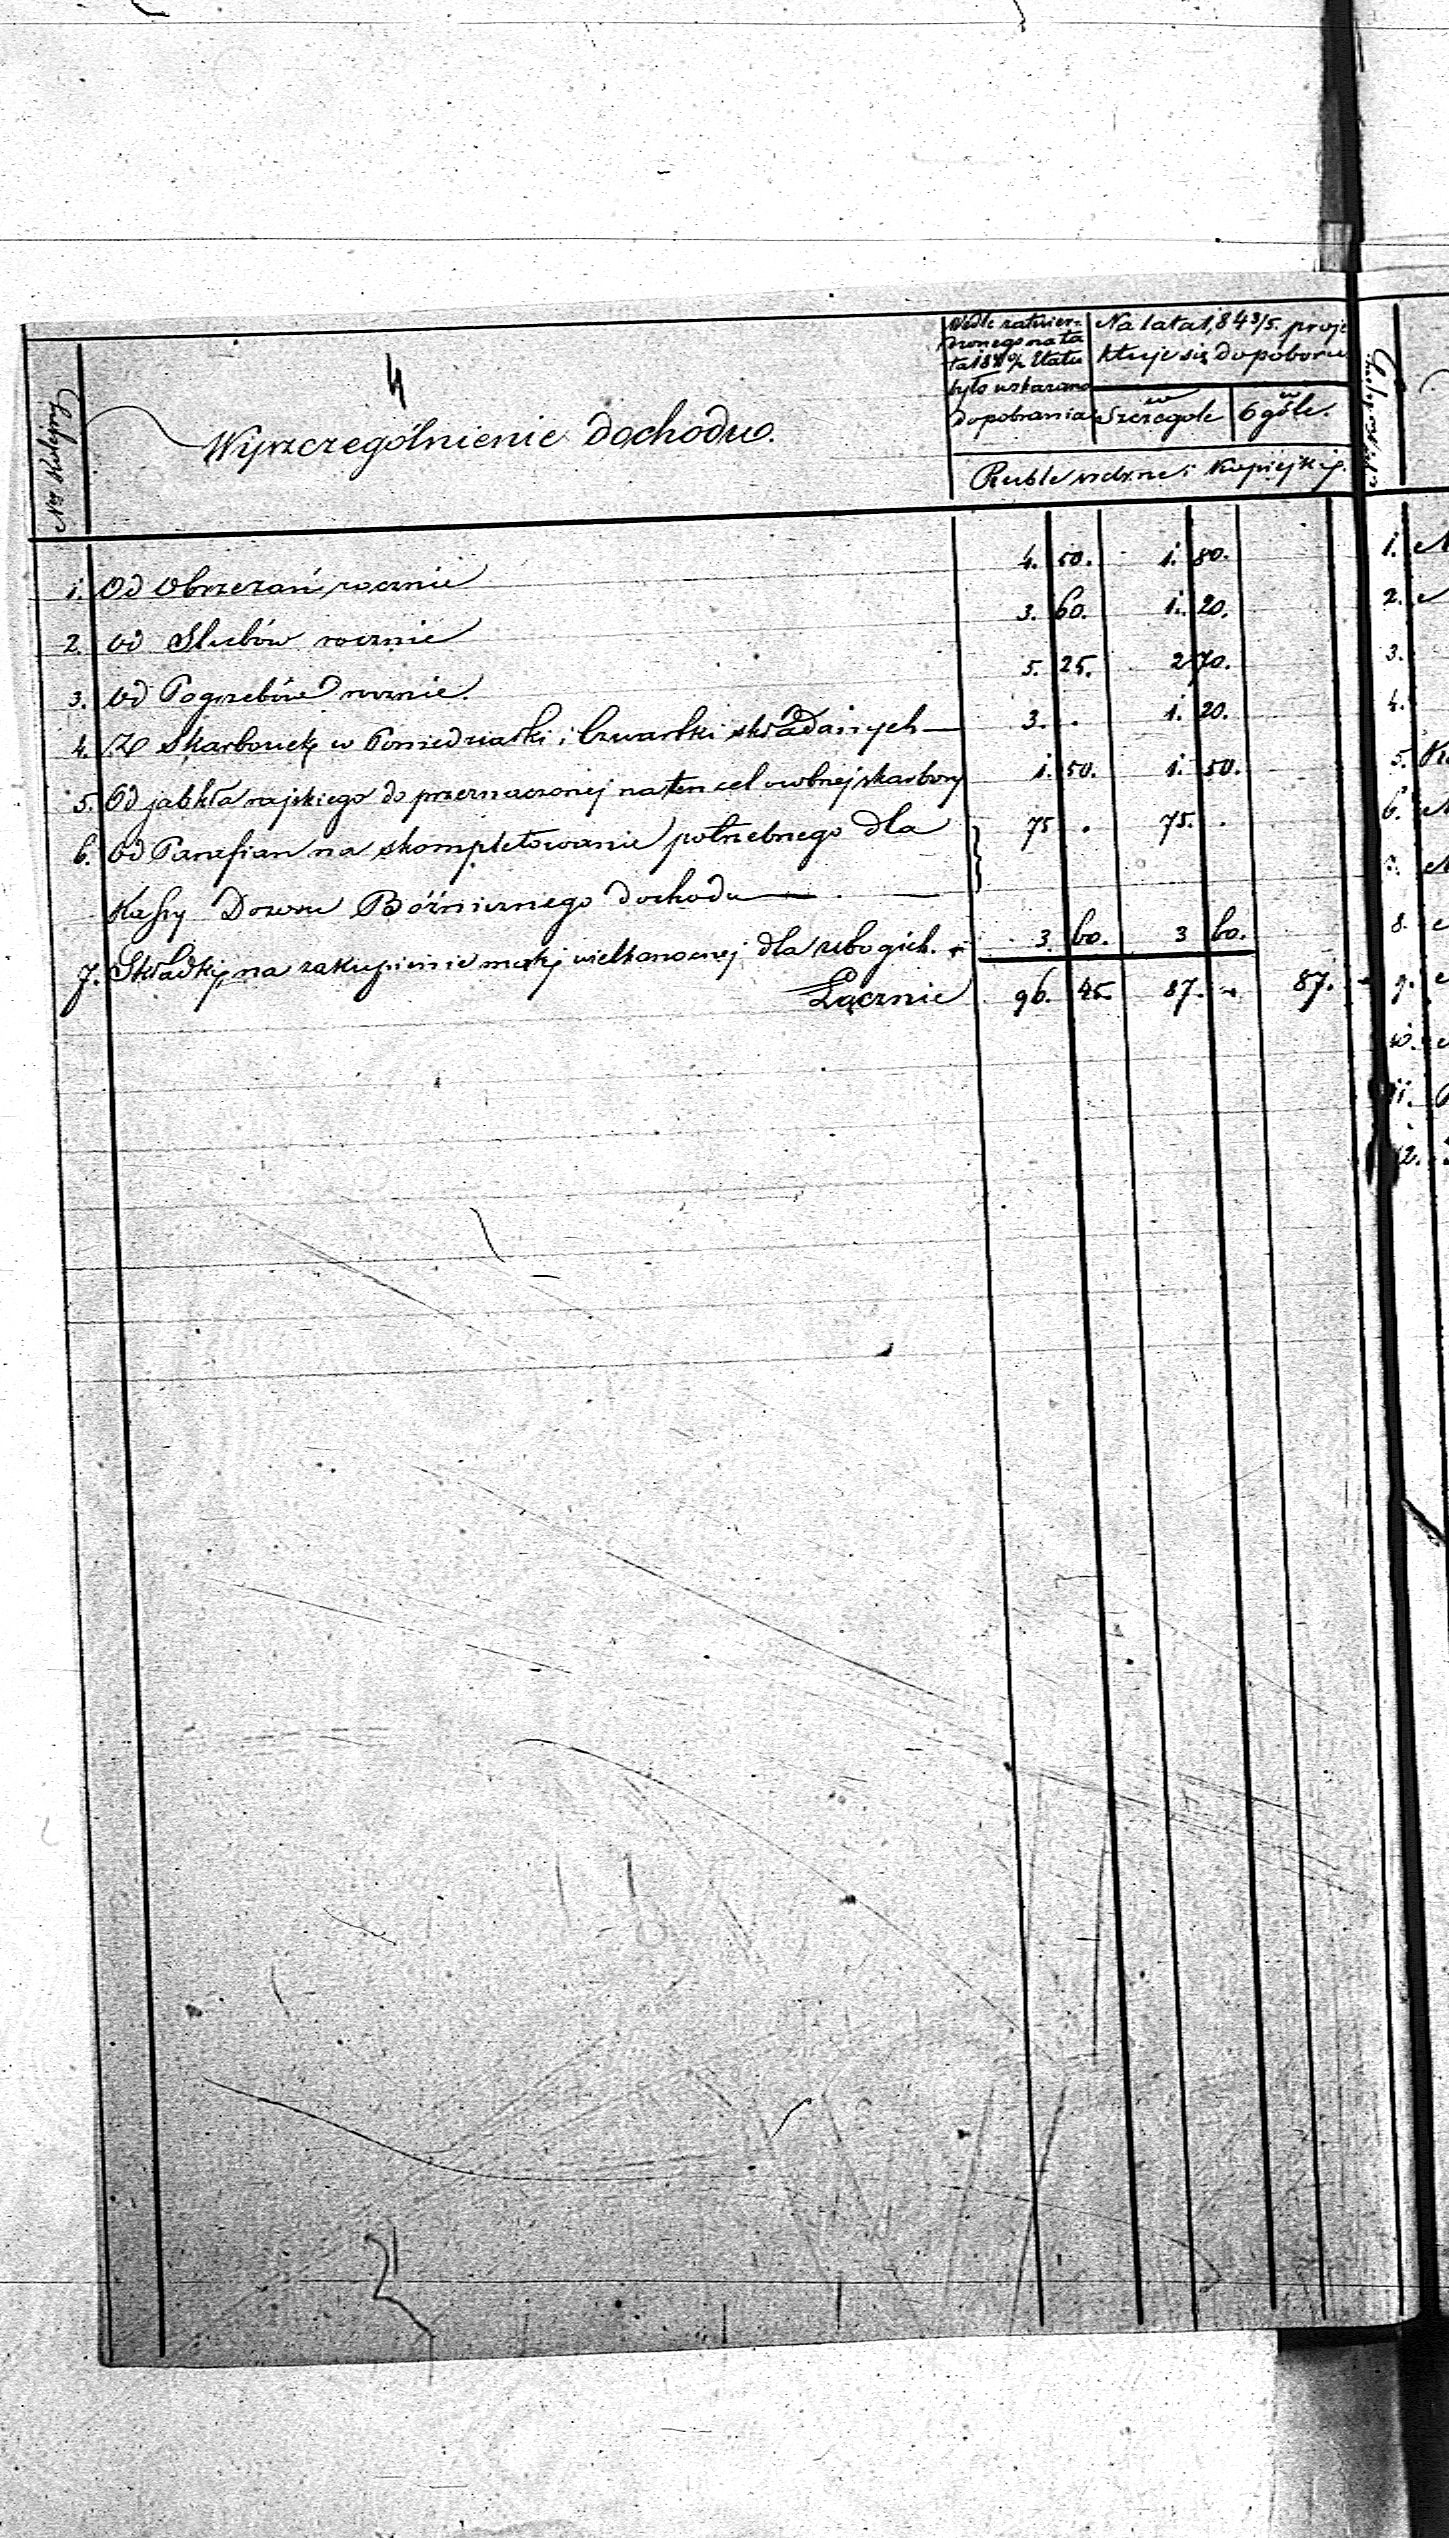 4
Nry Kolejny
Wyszczególnienie dochodu.
Wedle zatwier-
dzonego na la
ta 184 Etatu
było wskazano
do pobrania
Na lata 1843/5. proje
ktuje się do poboru
w Szczegole
w Ogóle.
Ruble srebrne i Kopiejki.
1. Od Obrzezań rocznie 4. 50. 1. 80.
2. od Slubów rocznie 3. 60. 1. 20.
3. od Pogrzebów rocznie. 5. 25. 2 70.
4. Ze Skarbonek w Poniedziałki i Czwartki składanych — 3. . 1. 20.
5. Od jabłka rajskiego do przeznaczonej na ten cel osobnej skarbony 1. 50. 1. 50.
6. od Parafian na skompletowanie potrzebnego dla 75 . 75. .
Kassy Dozoru Bóżniczego dochodu —
7. Składki na zakupienie macy wielkanocnej dla ubogich. 3. 60. 3 60.
Łącznie 96. 45. 87. - 87. -
1.
2.
3.
4.
5.
6.
7.
8.
9.
10.
11.
12.